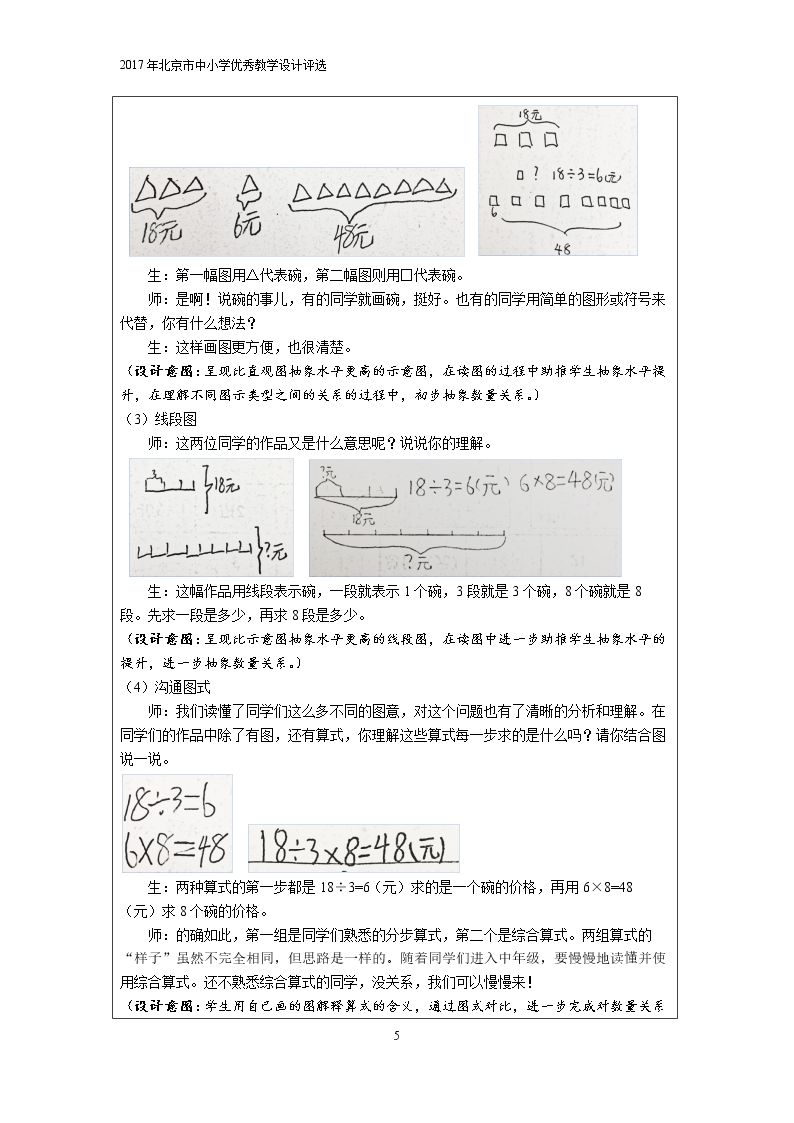 2017年北京市中小学优秀教学设计评选
18元
6元
48元
18元
? 18÷3=6(元)
6
48
生：第一幅图用△代表碗，第二幅图则用□代表碗。
师：是啊！说碗的事儿，有的同学就画碗，挺好。也有的同学用简单的图形或符号来
代替，你有什么想法？
生：这样画图更方便，也很清楚。
（设计意图：呈现比直观图抽象水平更高的示意图，在读图的过程中助推学生抽象水平提
升，在理解不同图示类型之间的关系的过程中，初步抽象数量关系。）
（3）线段图
师：这两位同学的作品又是什么意思呢？说说你的理解。
18元
?元
?元
18元
18÷3=6(元) 6×8=48(元)
?元
生：这幅作品用线段表示碗，一段就表示 1 个碗，3 段就是 3 个碗，8 个碗就是 8
段。先求一段是多少，再求 8 段是多少。
（设计意图：呈现比示意图抽象水平更高的线段图，在读图中进一步助推学生抽象水平的
提升，进一步抽象数量关系。）
（4）沟通图式
师：我们读懂了同学们这么多不同的图意，对这个问题也有了清晰的分析和理解。在
同学们的作品中除了有图，还有算式，你理解这些算式每一步求的是什么吗？请你结合图
说一说。
18÷3=6
6×8=48
18÷3×8=48(元)
生：两种算式的第一步都是 18÷3=6（元）求的是一个碗的价格，再用 6×8=48
（元）求 8 个碗的价格。
师：的确如此，第一组是同学们熟悉的分步算式，第二个是综合算式。两组算式的
“样子”虽然不完全相同，但思路是一样的。随着同学们进入中年级，要慢慢地读懂并使
用综合算式。还不熟悉综合算式的同学，没关系，我们可以慢慢来！
（设计意图：学生用自己画的图解释算式的含义，通过图式对比，进一步完成对数量关系
5